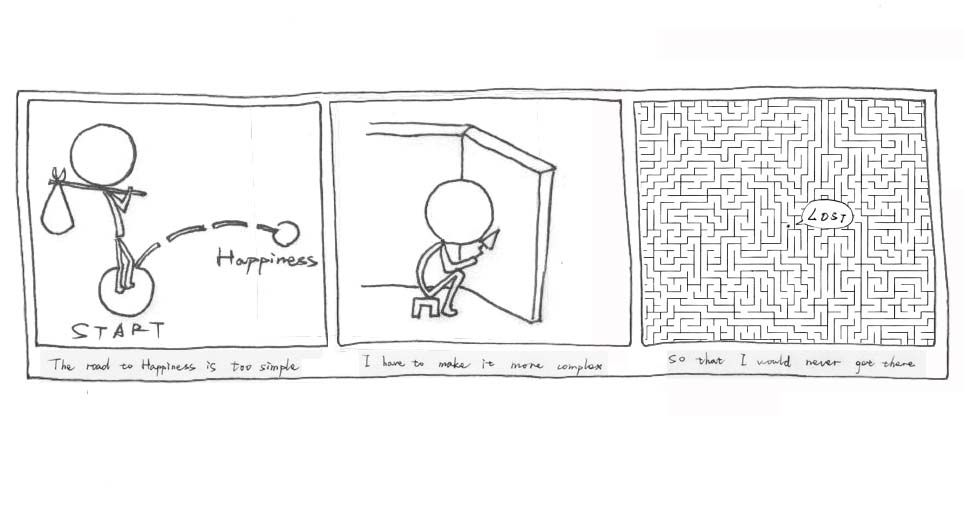 Happiness
START
LOST
The road to Happiness is too simple
I have to make it more complex
So that I would never got there